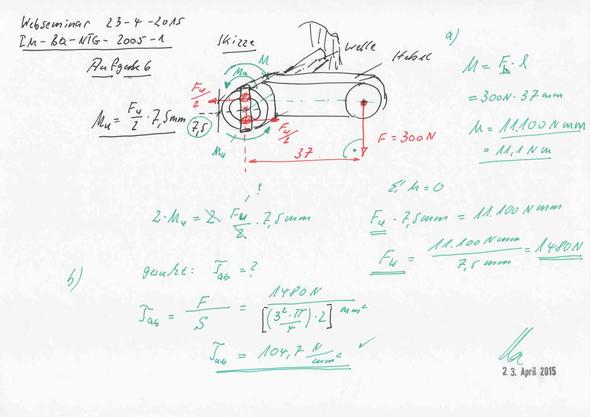 Webseminar 23-4-2015
IM-BQ-NTG-2005-1
Aufgabe 6
Skizze
Welle
Hebel
M
Mu
Fu/2
7,5
Mu
Fu/2
F = 300N
37
Mu = Fu/2 · 7,5mm
a)
M = F · l
= 300N · 37 mm
M = 11.100 Nmm
= 11,1 Nm
2 · Mu = 2 · Fu/2 · 7,5mm
!
Σ M = 0
Fu · 7,5mm = 11.100 Nmm
Fu = 11.100 Nmm / 7,5 mm = 1480N
b)
gesucht: τab = ?
τab = F/S = 1480N / [(3²·π/4)·2] mm²
τab = 104,7 N/mm² ✓
23. April 2015